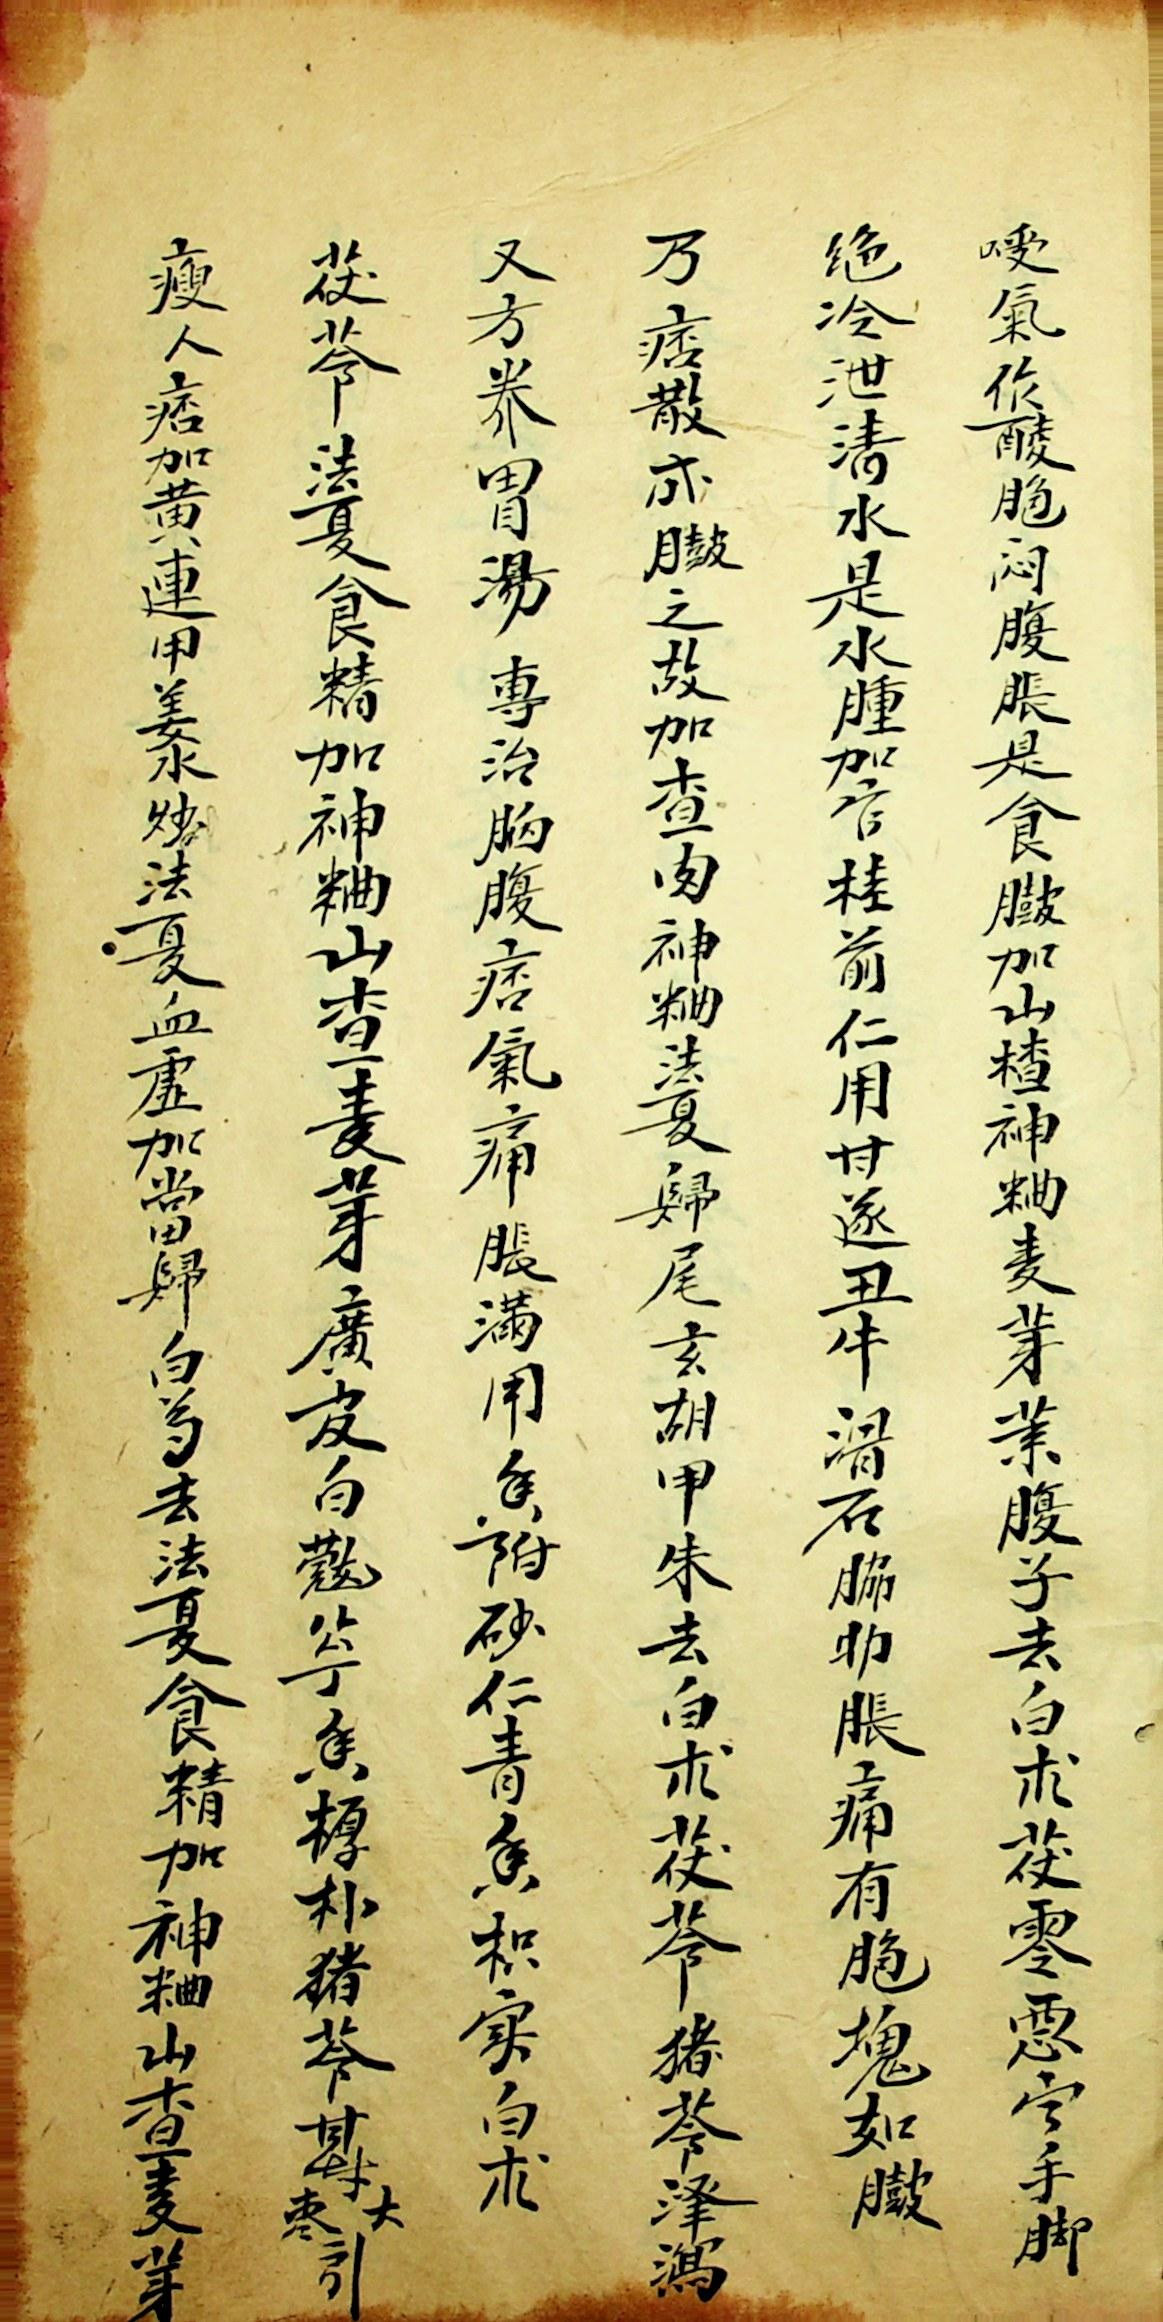 嗳氣作酸胞闷腹脹是食臌加山楂神粬麦芽葉腹子去白朮茯零惡寒手脚
绝冷泄清水是水腫加官桂前仁用甘遂丑牛滑石脇肋脹痛有胞塊如臌
乃痞散成臌之故加查肉神粬法夏歸尾玄胡甲朱去白朮茯苓猪苓泽瀉
又方养胃湯專治胸腹痞氣痛脹滿用香附砂仁青香枳实白朮
茯苓法夏食精加神粬山查麦芽廣皮白蔻公丁香樸朴猪苓甘艸大枣引
瘦人痞加黄連用姜水炒法夏血虚加當歸白芍去法夏食精加神粬山查麦芽